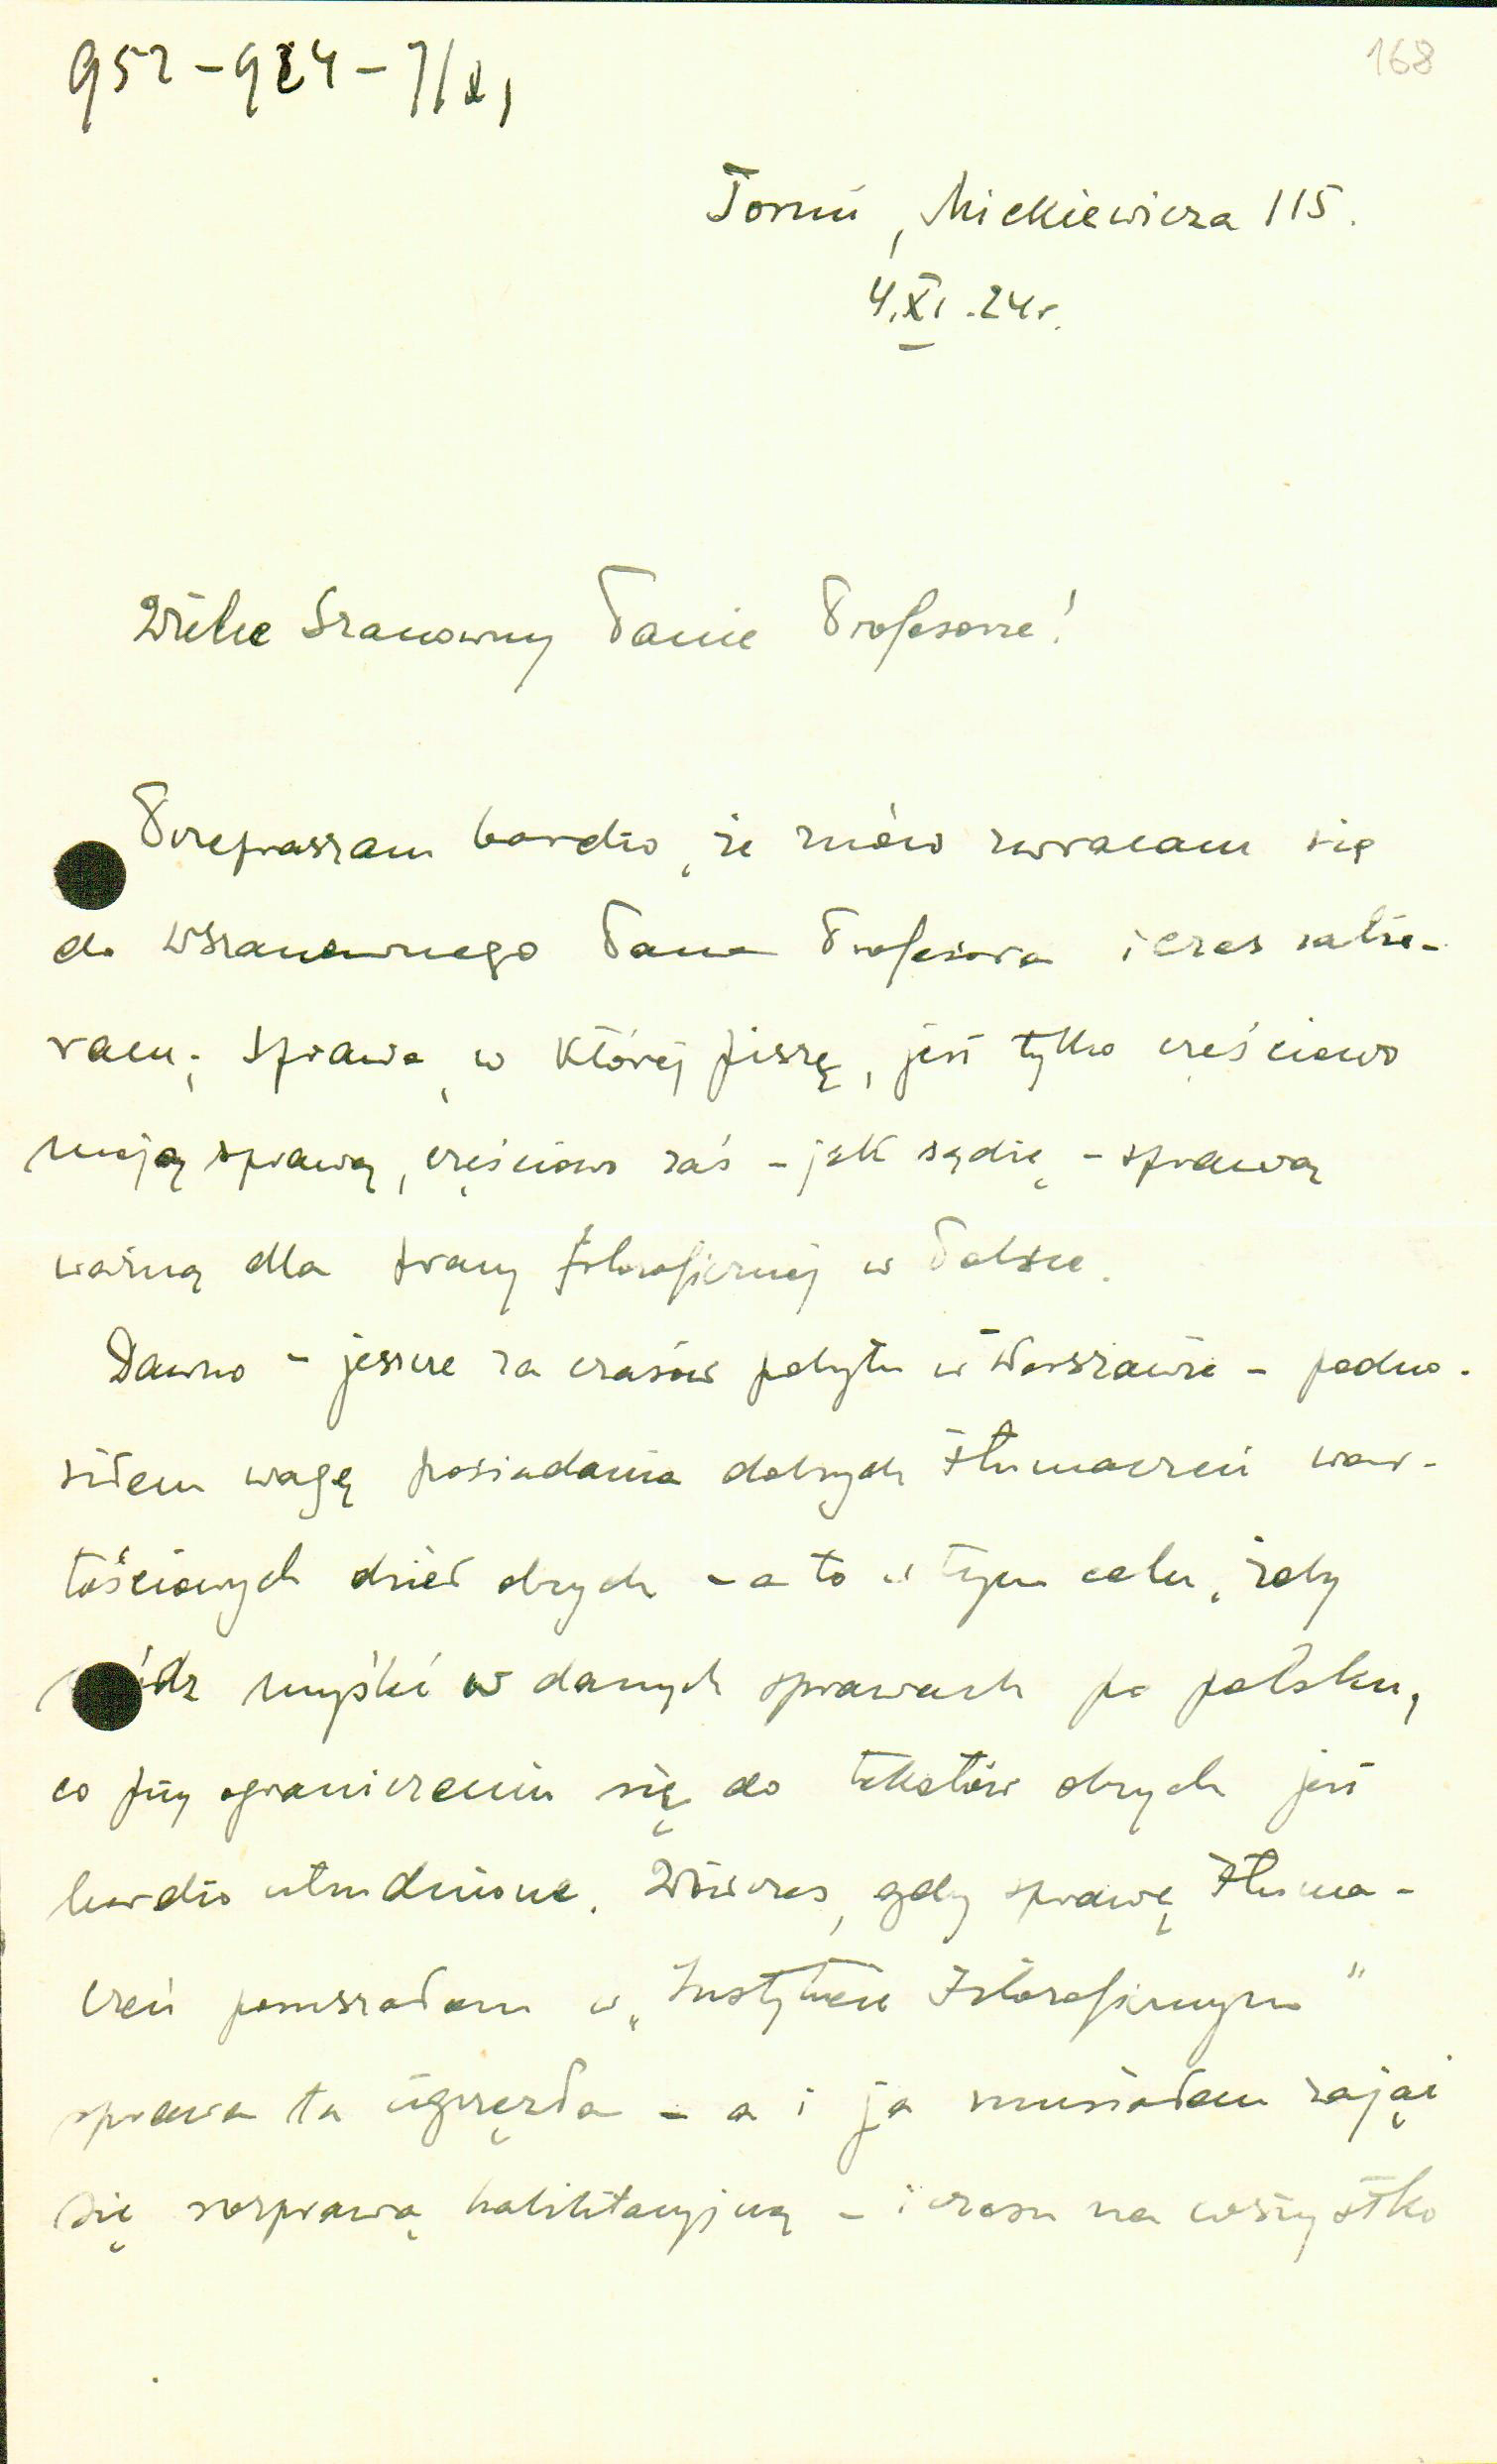 952-924-7/XI
168
Toruń, Mickiewicza 115.
4.XI.24r.
Wielce Szanowny Panie Profesorze!
Przepraszam bardzo, że znów zwracam się
do WSzanownego Pana Profesora i czas zabie-
ram; sprawa, w której piszę, jest tylko częściowo
moją sprawą, częściowo zaś - jak sądzę - sprawą
ważną dla pracy filozoficznej w Polsce.
Dawno - jeszcze za czasów pobytu w Warszawie - podno-
siłem wagę posiadania dobrych tłumaczeń war-
tościowych dzieł obcych - a to w tym celu, żeby
módz myśleć w danych sprawach po polsku,
co przy ograniczeniu się do tekstów obcych jest
bardzo utrudnione. Wówczas, gdy sprawę tłuma-
czeń poruszałem w "Instytucie Filozoficznym"
sprawa ta ugrzęzła - a i ja musiałem zająć
się rozprawą habilitacyjną - i czasu na wszystko